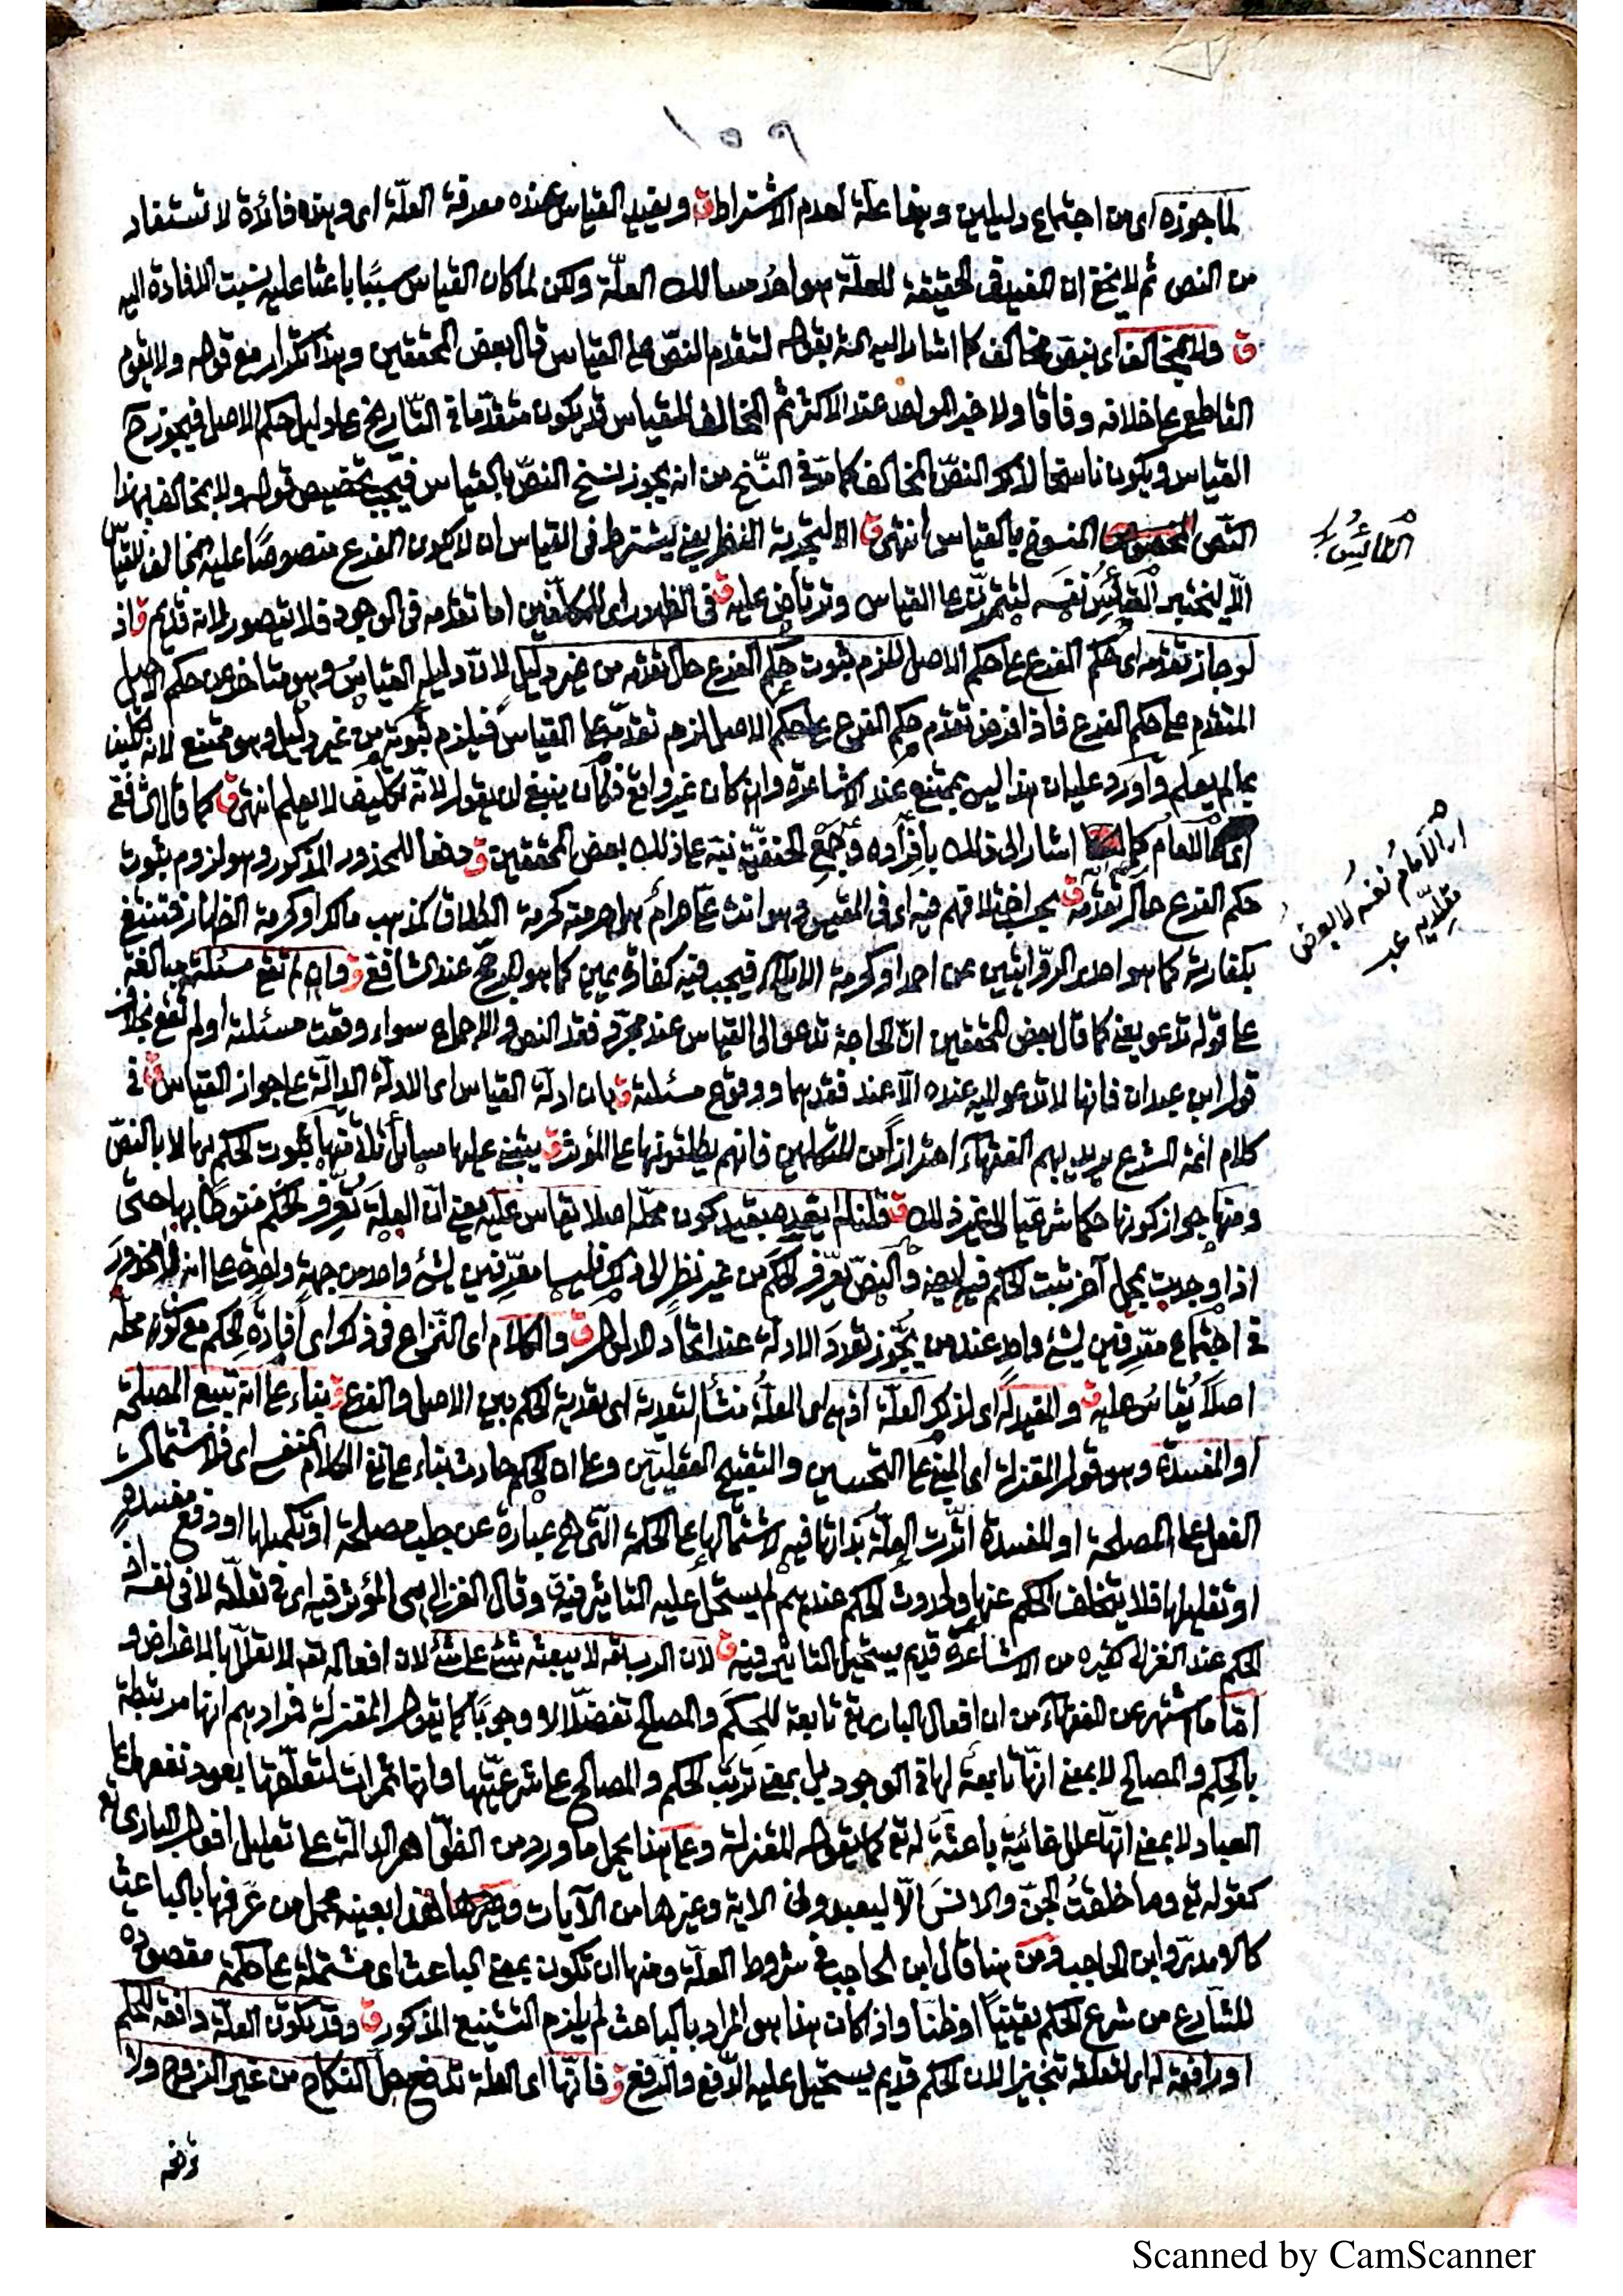 ٢٥١
لما جوزه اى من اجتماع دليلين وبنها علة لعدم الاشتراط ق ويفيد القياس عنده معرفة العلّة اى وهذه فائدة لا تستفاد
من النص ثم لا يخفى ان المفيد فى الحقيقة للعلّة هو احد مسالك العلّة ولكن لما كان القياس سببًا باعثا عليه نسبت الافادة اليه
ق ولا يخالف اى بنص مخالف كما اشار اليه المص بقوله لتقدم النصّ على القياس قال بعض المحققين وهذا تكرار مع قوله ولا يقوم
القاطع على خلافه وفاقا ولا خبر الواحد عند الاكثر ثم المخالف للقياس قد يكون متقدّما فى التّاريخ على دليل حكم الاصل فيجوز ح
القياس ويكون ناسخا لذلك النصّ المخالف كما مرّ فى النّسخ من انه يجوز نسخ النصّ بالقياس فيجب تخصيص قوله ولا يخالف بهذا
النّص المنسوخ بالقياس انتهى ق الا لتجربة النظر يعنى يشترط فى القياس ان لا يكون الفرع منصوصًا عليه بمخالف للقياس
الّا ليختبر القائس نفسه ليتمرّن على القياس وترتاض عليه ق فى الظهور اى للمكلّفين اما تقدمه فى الوجود فلا يتصور لانه قديم ق اذ
لو جاز تقدمه اى حكم الفرع على حكم الاصل للزم ثبوت حكم الفرع حال تقدمه من غير دليل لانّ دليله القياس وهو متاخر عن حكم الاصل
المتقدم على حكم الفرع فاذا فرض تقدم حكم الفرع على حكم الاصل لزم تقدمه على القياس فيلزم ثبوته من غير دليل وهو ممتنع لانه تكليف
بما لم يعلم واورد عليه ان هذا ليس بممتنع عند الاشاعرة وان كان غير واقع فكان ينبغى ان يقول لانّه تكليف لا يعلم انتهى ق كما قال الشافعى
اى الامام كما اشار الى ذلك بافراده وجمع الحنفيّة نبه على ذلك بعض المحققين ق دفعا للمحذور المذكور وهو لزوم ثبوت
حكم الفرع حال تقدّمه ق بحسب اختلافهم فيه اى فى المقيس وهو انت علىّ حرام هل حرمته كحرمة الطلاق كمذهب مالك او كحرمة الظهار فتنتفى
بكفارته كما هو احدى الرّوايتين عن احمد او كحرمة الايلاء فيجب فيه كفارة يمين كما هو المرجّح عند الشافعى ق وان لم تقع مسئلة مبالغة
على قوله تدعو يعنى كما قال بعض المحققين انّ الحاجة تدعو الى القياس عند مجرّد فقد النص والاجماع سواء وقعت مسئلة او لم تقع بخلاف
قول ابن عبدان فانها لا تدعو اليه عنده الّا عند فقدهما ووقوع مسئلة ق بان ادلّة القياس اى الادلّة الدالّة على جواز القياس ق فى
كلام ائمّة الشرع يريد بهم الفقهاء احترازًا من المتكلمين فانهم يطلقونها على المؤثر ق يبتنى عليها مسائل تأتى منها ثبوت الحكم بها لا بالنصّ
ومنها جواز كونها حكما شرعيّا الى غير ذلك ق قلنا لم يقيده بقيد كون محلّه اصلا يقاس عليه يعنى انّ العلّة تعرّف الحكم منوطًا بها حتى
اذا وجدت بمحل آخر ثبت الحكم فيه ايضا والنصّ يعرّف الحكم من غير نظر الى ذلك فليسا معرّفين لشئ واحد من جهة واحدة على انه لا محذور
فى اجتماع معرّفين لشئ واحد عند من يجوّز تعدد الادلّة عند اتّحاد المدلول ق والكلام اى النّزاع فى ذلك اى افادة الحكم مع كون محلّه
اصلًا يقاس عليه ق والمفيد له اى لذلك العلّة اذ هى اى العلّة منشأ التعدية اى تعدية الحكم بين الاصل والفرع ق بناء على انه يتبع المصلحة
او المفسدة وهو قول المعتزلة اى المبنى على التحسين والتقبيح العقليّين وعلى ان الحكم حادث بناء على نفى الكلام النفسى اى فلاشتمال
الفعل على المصلحة او المفسدة اثّرت العلّة بذاتها فيه لاشتمالها على الحكمة التى هى عبارة عن جلب مصلحة او تكميلها او دفع مفسدة
او تقليلها فلا يتخلف الحكم عنها ولحدوث الحكم عندهم لم يستحل عليه التاثير فيه ق وقال الغزالى هى المؤثر فيه اى فى تعلّقه لا فى نفسه اذ
الحكم عند الغزالى كغيره من الاشاعرة قديم يستحيل التاثير فيه ق لان الرب تعالى لا يبعثه شئ على شئ لان افعاله تعه لا تعلّل بالاغراض و
امّا ما اشتهر عن الفقهاء من ان افعال البارى تع تابعة للحكم والمصالح تفضّلًا لا وجوبًا كما يقوله المعتزلة فمرادهم انها مرتبطة
بالحكم والمصالح لا بمعنى انّها تابعة لها فى الوجود بل بمعنى ترتب الحكم والمصالح على شرعيّتها وانها ثمرات لتعلّقها يعود نفعها على
العباد لا بمعنى انّها علل غائيّة باعثة له تع كما يقوله المعتزلة وعلى هذا يحمل ما ورد من الظّواهر الدالّة على تعليل افعال البارى تع
كقوله تع وما خلقتُ الجنّ والانسَ الّا ليعبدون الاية وغيرها من الآيات وهذا بعينه محمل من عرّفها بالباعث
كالآمدىّ وابن الحاجب ومن هنا قال ابن الحاجب فى شروط العلّة ومنها ان تكون بمعنى الباعث اى مشتملة على حكمة مقصودة
للشّارع من شرع الحكم يقينًا او ظنّا واذا كان هذا هو المراد بالباعث لم يلزم التشنيع المذكور ق وقد تكون العلّة دافعة للحكم
او رافعة له اى لتعلقه تنجيزا لان الحكم قديم يستحيل عليه الدّفع والرّفع ق فانّها اى العلّة تدفع حلّ النكاح من غير الزوج ولا
القائس
ار الامام نفسه لا بعض
مقلديه عبد